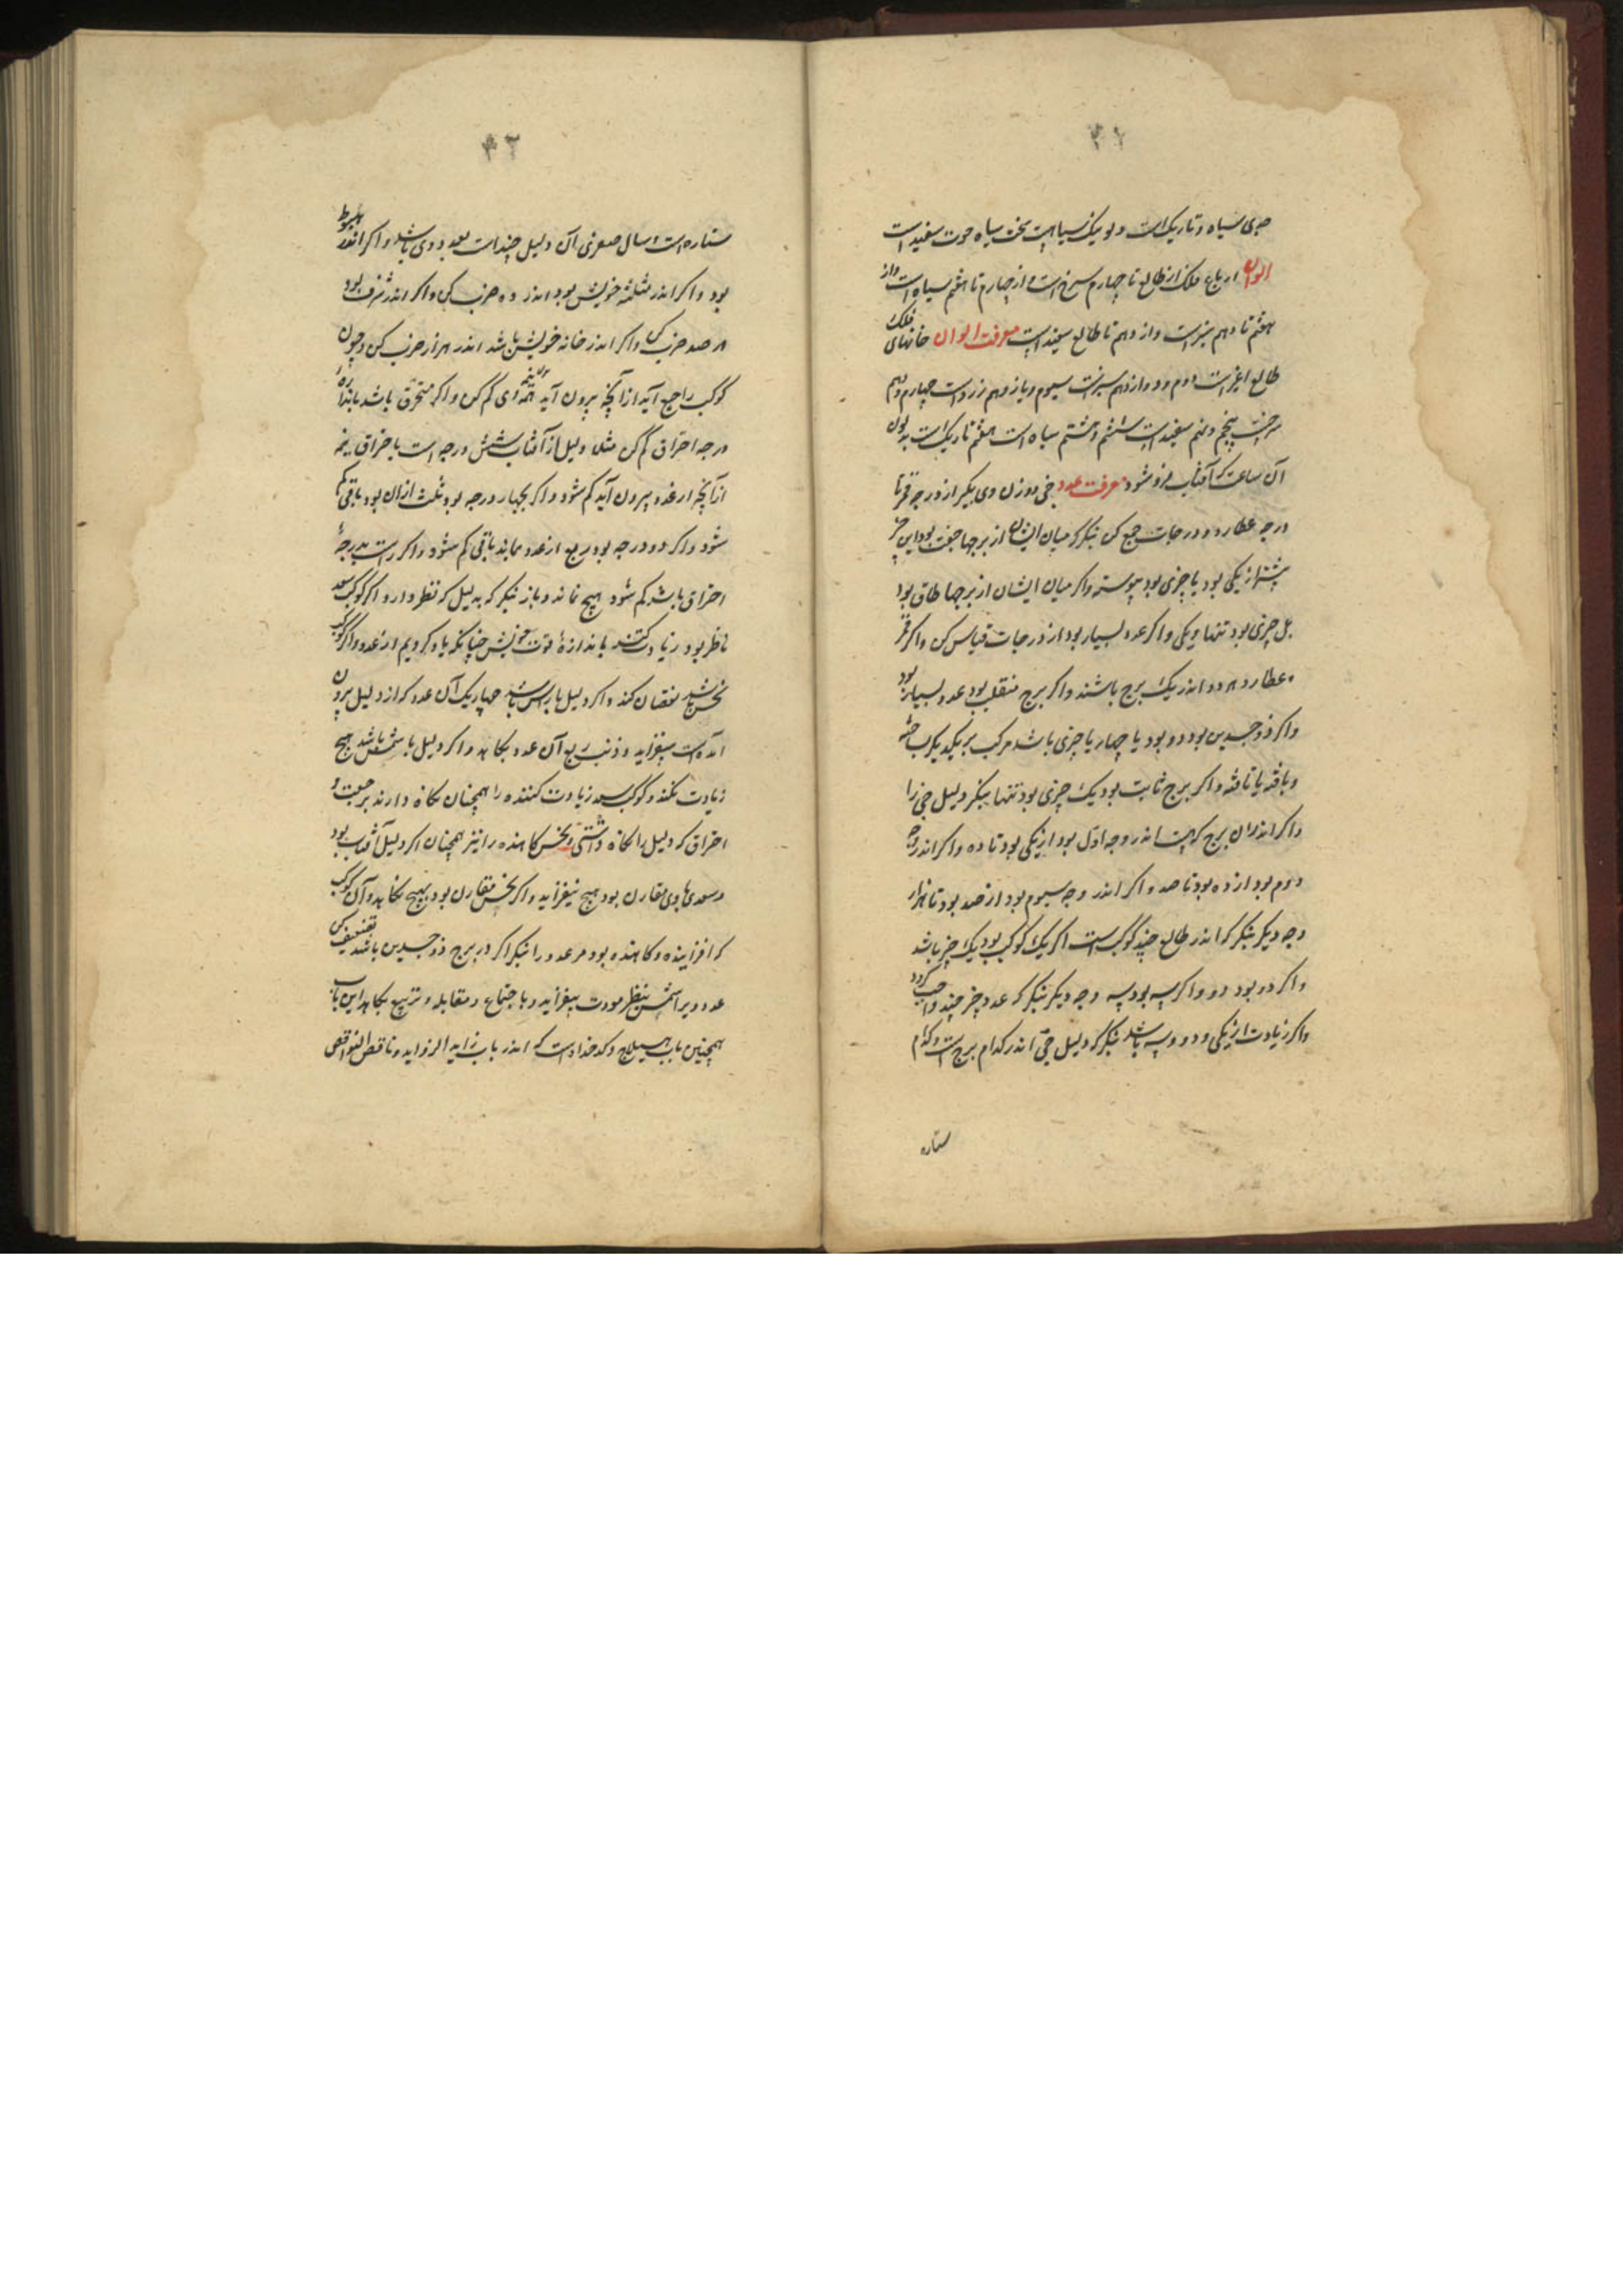 ۴۱
جدی سیاه و تاریک است دلو نیک سیاهست سخت سیاه حوت سفید است
الوان ارباع فلک از طالع تا چهارم سرخ است و از چهارم تا هفتم سیاه است و از
هفتم تا دهم سبز است و از دهم تا طالع سفید است معرفت الوان خانهای فلک
طالع اغبر است دوم و دوازدهم سبز است سیوم و یازدهم زرد است چهارم و دهم
سرخست پنجم و نهم سفید است ششم و هشتم سیاه است هفتم تاریک است بدلون
آن ساعت که آفتاب فرو شود معرفت عدد خبی و وزن وی بگیر از درجه قمر تا
درجه عطارد و درجات جمع کن بنگر که میان ایشان از برجها جفت بود این چیز
بیشتر از یکی بود یا چیزی بود پیوسته و اگر میان ایشان از برجها طاق بود
بل چیزی بود تنها و یکی و اگر عدد بسیار بود از درجات قیاس کن و اگر قمر
و عطارد هر دو اندر یک برج باشند و اگر برج منقلب بود عدد بسیار بود
و اگر ذو جسدین بود دو بود یا چهار یا چیزی باشد مرکب بر یکدیگر
و بافته یا تافته و اگر برج ثابت بود یک چیزی بود تنها بنگر دلیل خبی را
و اگر اندران برج کهست اندر وجه اول بود از یکی بود تا ده و اگر اندر وجه
دوم بود از ده بود تا صد و اگر اندر وجه سیوم بود از صد بود تا هزار
وجه دیگر بنگر که اندر طالع چند کوکب است اگر یک کوکب بود یک چیز باشد
و اگر دو بود دو و اگر سه بود سه وجه دیگر بنگر که عدد چیز چند واجب کردد
و اگر زیادت از یکی و دو و سه باشد بنگر که دلیل خبی اندر کدام برج است و کدام
ستاره
۴۲
ستاره است و سال صغری آن دلیل چند است بعدد وی باشد و اگر اندر هبوط
بود و اگر اندر مثلثه خویش بود اندر ده ضرب کن و اگر اندر شرف بود
در صد ضرب کن و اگر اندر خانه خویش باشد اندر هزار ضرب کن و چون
کوکب راجع آید از آنچه بیرون آید نیمه وی کم کن و اگر محترق باشد باندازه
درجه احتراق کم کن مثلا دلیل از آفتاب شش درجه است باحتراق نیم
از آنچه از عدد بیرون آید کم شود و اگر بچهار درجه بود ثلث ازان بود باقی کم
شود و اگر دو درجه بود ربع از عدد بماند باقی کم شود و اگر راست بدرجهٔ
احتراق باشد کم شود هیچ نماند و باز بنگر که بدلیل که نظر دارد اگر کوکب سعد
ناظر بود زیادت کند باندازهٔ قوت خویش چنانکه یاد کردیم از عدد و اگر کوکب
نحس باشد نقصان کند و اگر دلیل با راس باشد چهار یک آن عدد که از دلیل بیرون
آمده است بیفزاید و ذنب ربع آن عدد بکاهد و اگر دلیل با شمس باشد هیچ
زیادت نکند و کوکب سعد زیادت کننده را همچنان نگاه دارند برجعت و
احتراق که دلیل را نگاه داشتی و نحس کاهنده را نیز همچنان اگر دلیل آفتاب بود
و سعدی با وی مقارن بود هیچ نیفزاید و اگر نحس مقارن بود هیچ نکاهد و آن کوکب
که افزاینده و کاهنده بود مر عدد را بنگر اگر در برج ذو جسدین باشد تضعیف کن
عدد و براشمس بنظر مودت بیفزاید و باجتماع و مقابله و تربیع بکاهد این باب
همچنین باب هیلاج و کدخداست که اندر باب زاید الزواید و ناقص النواقص